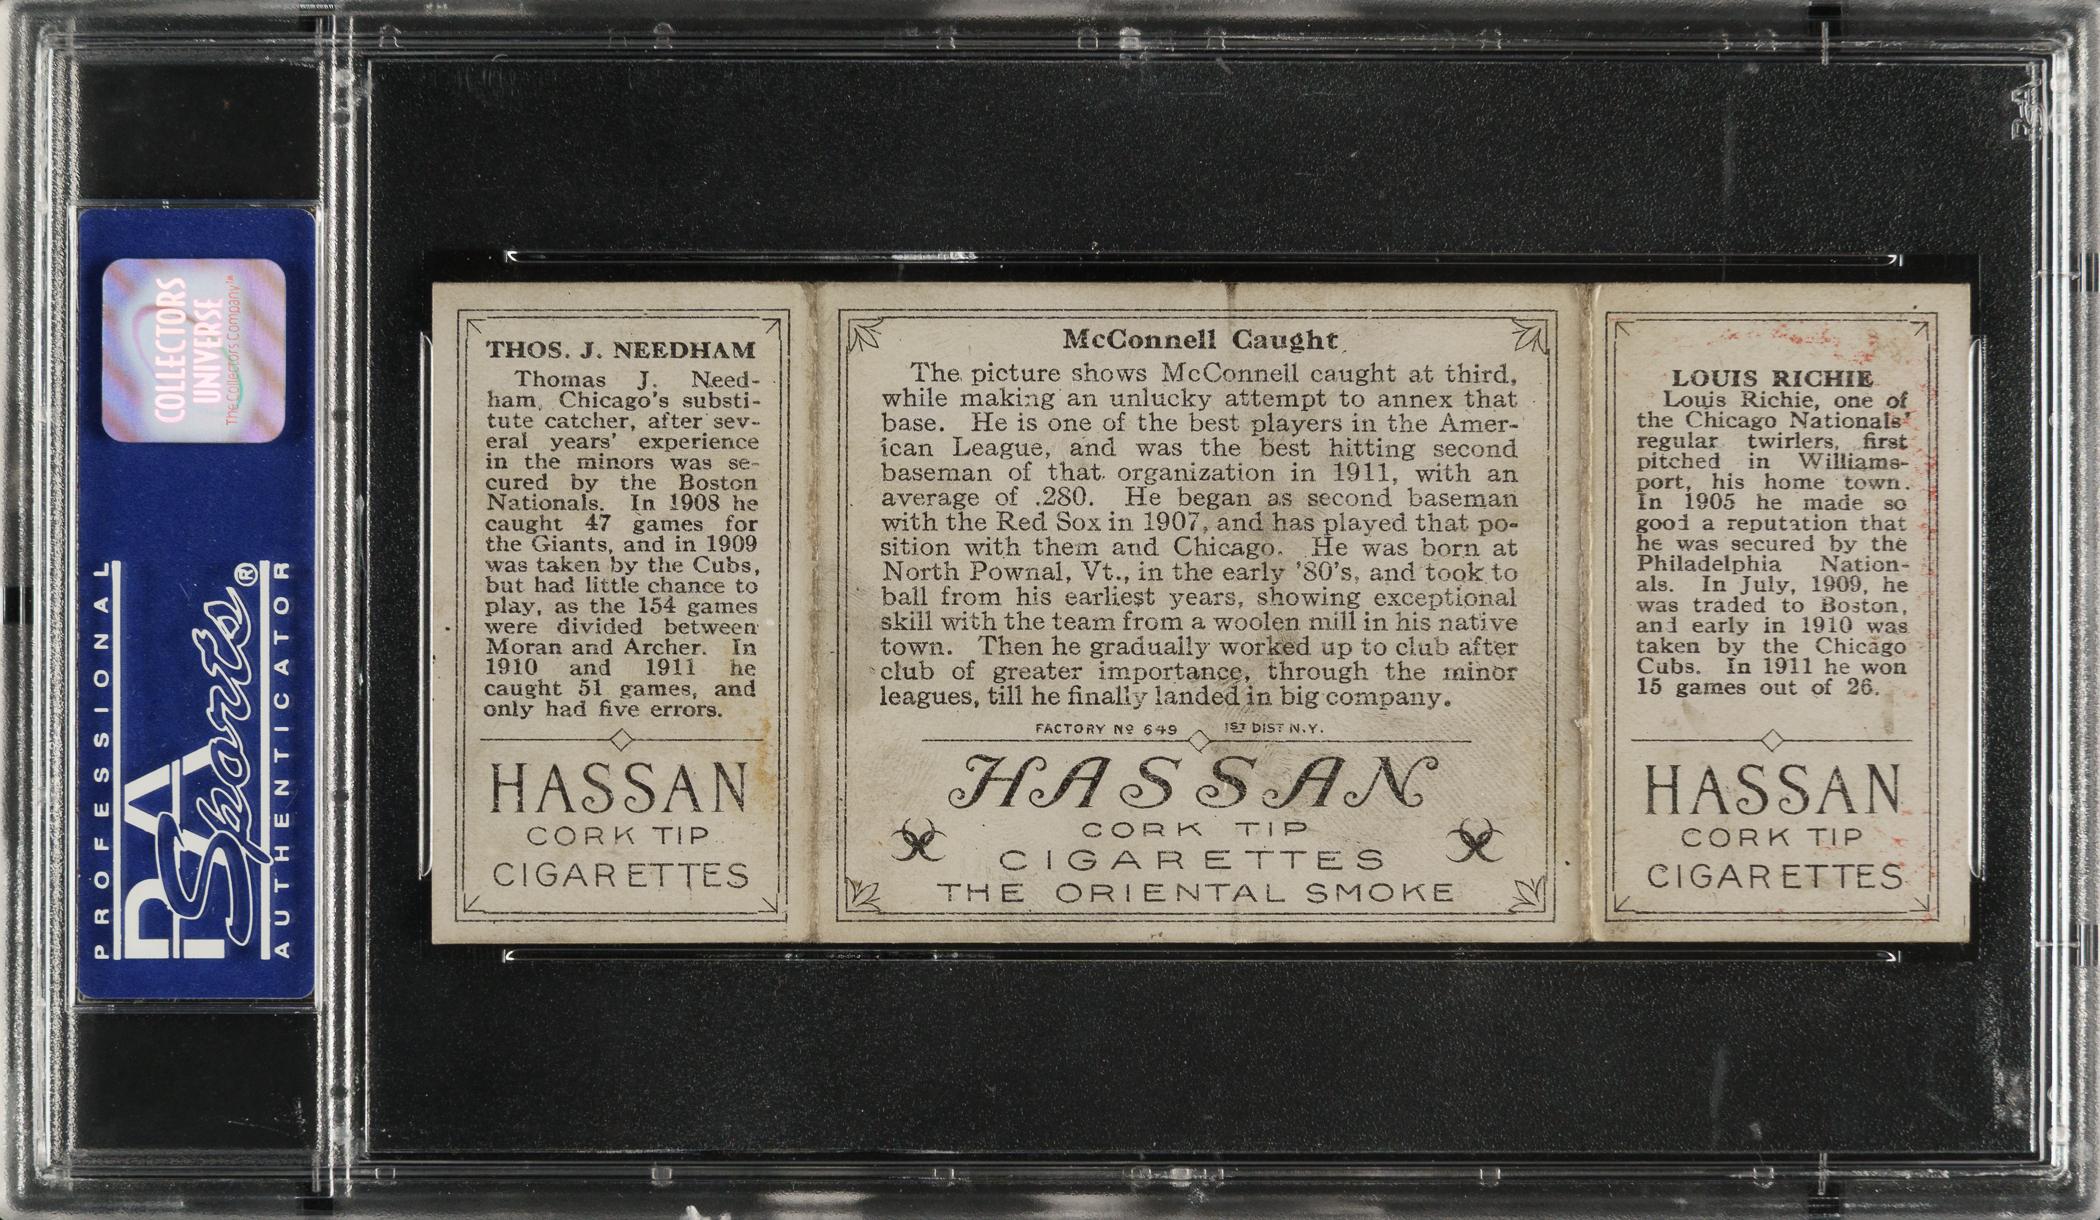 COLLECTORS
UNIVERSE
The Collectors Company™
PROFESSIONAL
PSA
Sports®
AUTHENTICATOR
THOS. J. NEEDHAM
Thomas J. Need-
ham, Chicago's substi-
tute catcher, after sev-
eral years' experience
in the minors was se-
cured by the Boston
Nationals. In 1908 he
caught 47 games for
the Giants, and in 1909
was taken by the Cubs,
but had little chance to
play, as the 154 games
were divided between
Moran and Archer. In
1910 and 1911 he
caught 51 games, and
only had five errors.
HASSAN
CORK TIP
CIGARETTES
McConnell Caught
The picture shows McConnell caught at third,
while making an unlucky attempt to annex that
base. He is one of the best players in the Amer-
ican League, and was the best hitting second
baseman of that organization in 1911, with an
average of .280. He began as second baseman
with the Red Sox in 1907, and has played that po-
sition with them and Chicago. He was born at
North Pownal, Vt., in the early '80's, and took to
ball from his earliest years, showing exceptional
skill with the team from a woolen mill in his native
town. Then he gradually worked up to club after
club of greater importance, through the minor
leagues, till he finally landed in big company.
FACTORY Nº 649 1ST DIST N.Y.
HASSAN
CORK TIP
CIGARETTES
THE ORIENTAL SMOKE
LOUIS RICHIE
Louis Richie, one of
the Chicago Nationals'
regular twirlers, first
pitched in Williams-
port, his home town.
In 1905 he made so
good a reputation that
he was secured by the
Philadelphia Nation-
als. In July, 1909, he
was traded to Boston,
and early in 1910 was
taken by the Chicago
Cubs. In 1911 he won
15 games out of 26.
HASSAN
CORK TIP
CIGARETTES
PSA